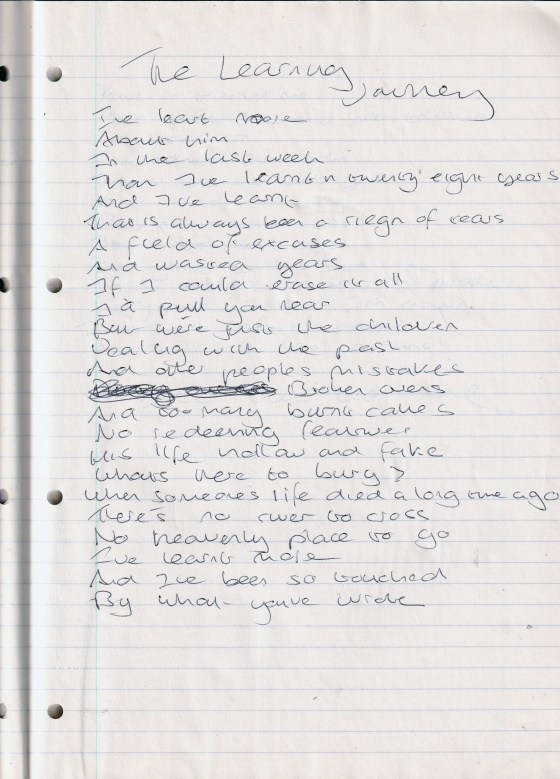 The Learning
Journey
I've learnt more
About him
In the last week
Than I've learnt in twenty eight years
And I've learnt
That is always been a riegn of tears
A field of excuses
And wasted years
If I could erase it all
I'd pull you near
But we're just the children
Dealing with the past
And other peoples mistakes
Broken ovens
And too many burnt cakes
No redeeming features
His life hollow and fake
Whats there to bury?
When someones life died a long time ago
There's no river to cross
No heavenly place to go
I've learnt more
And I've been so touched
By what you've wrote